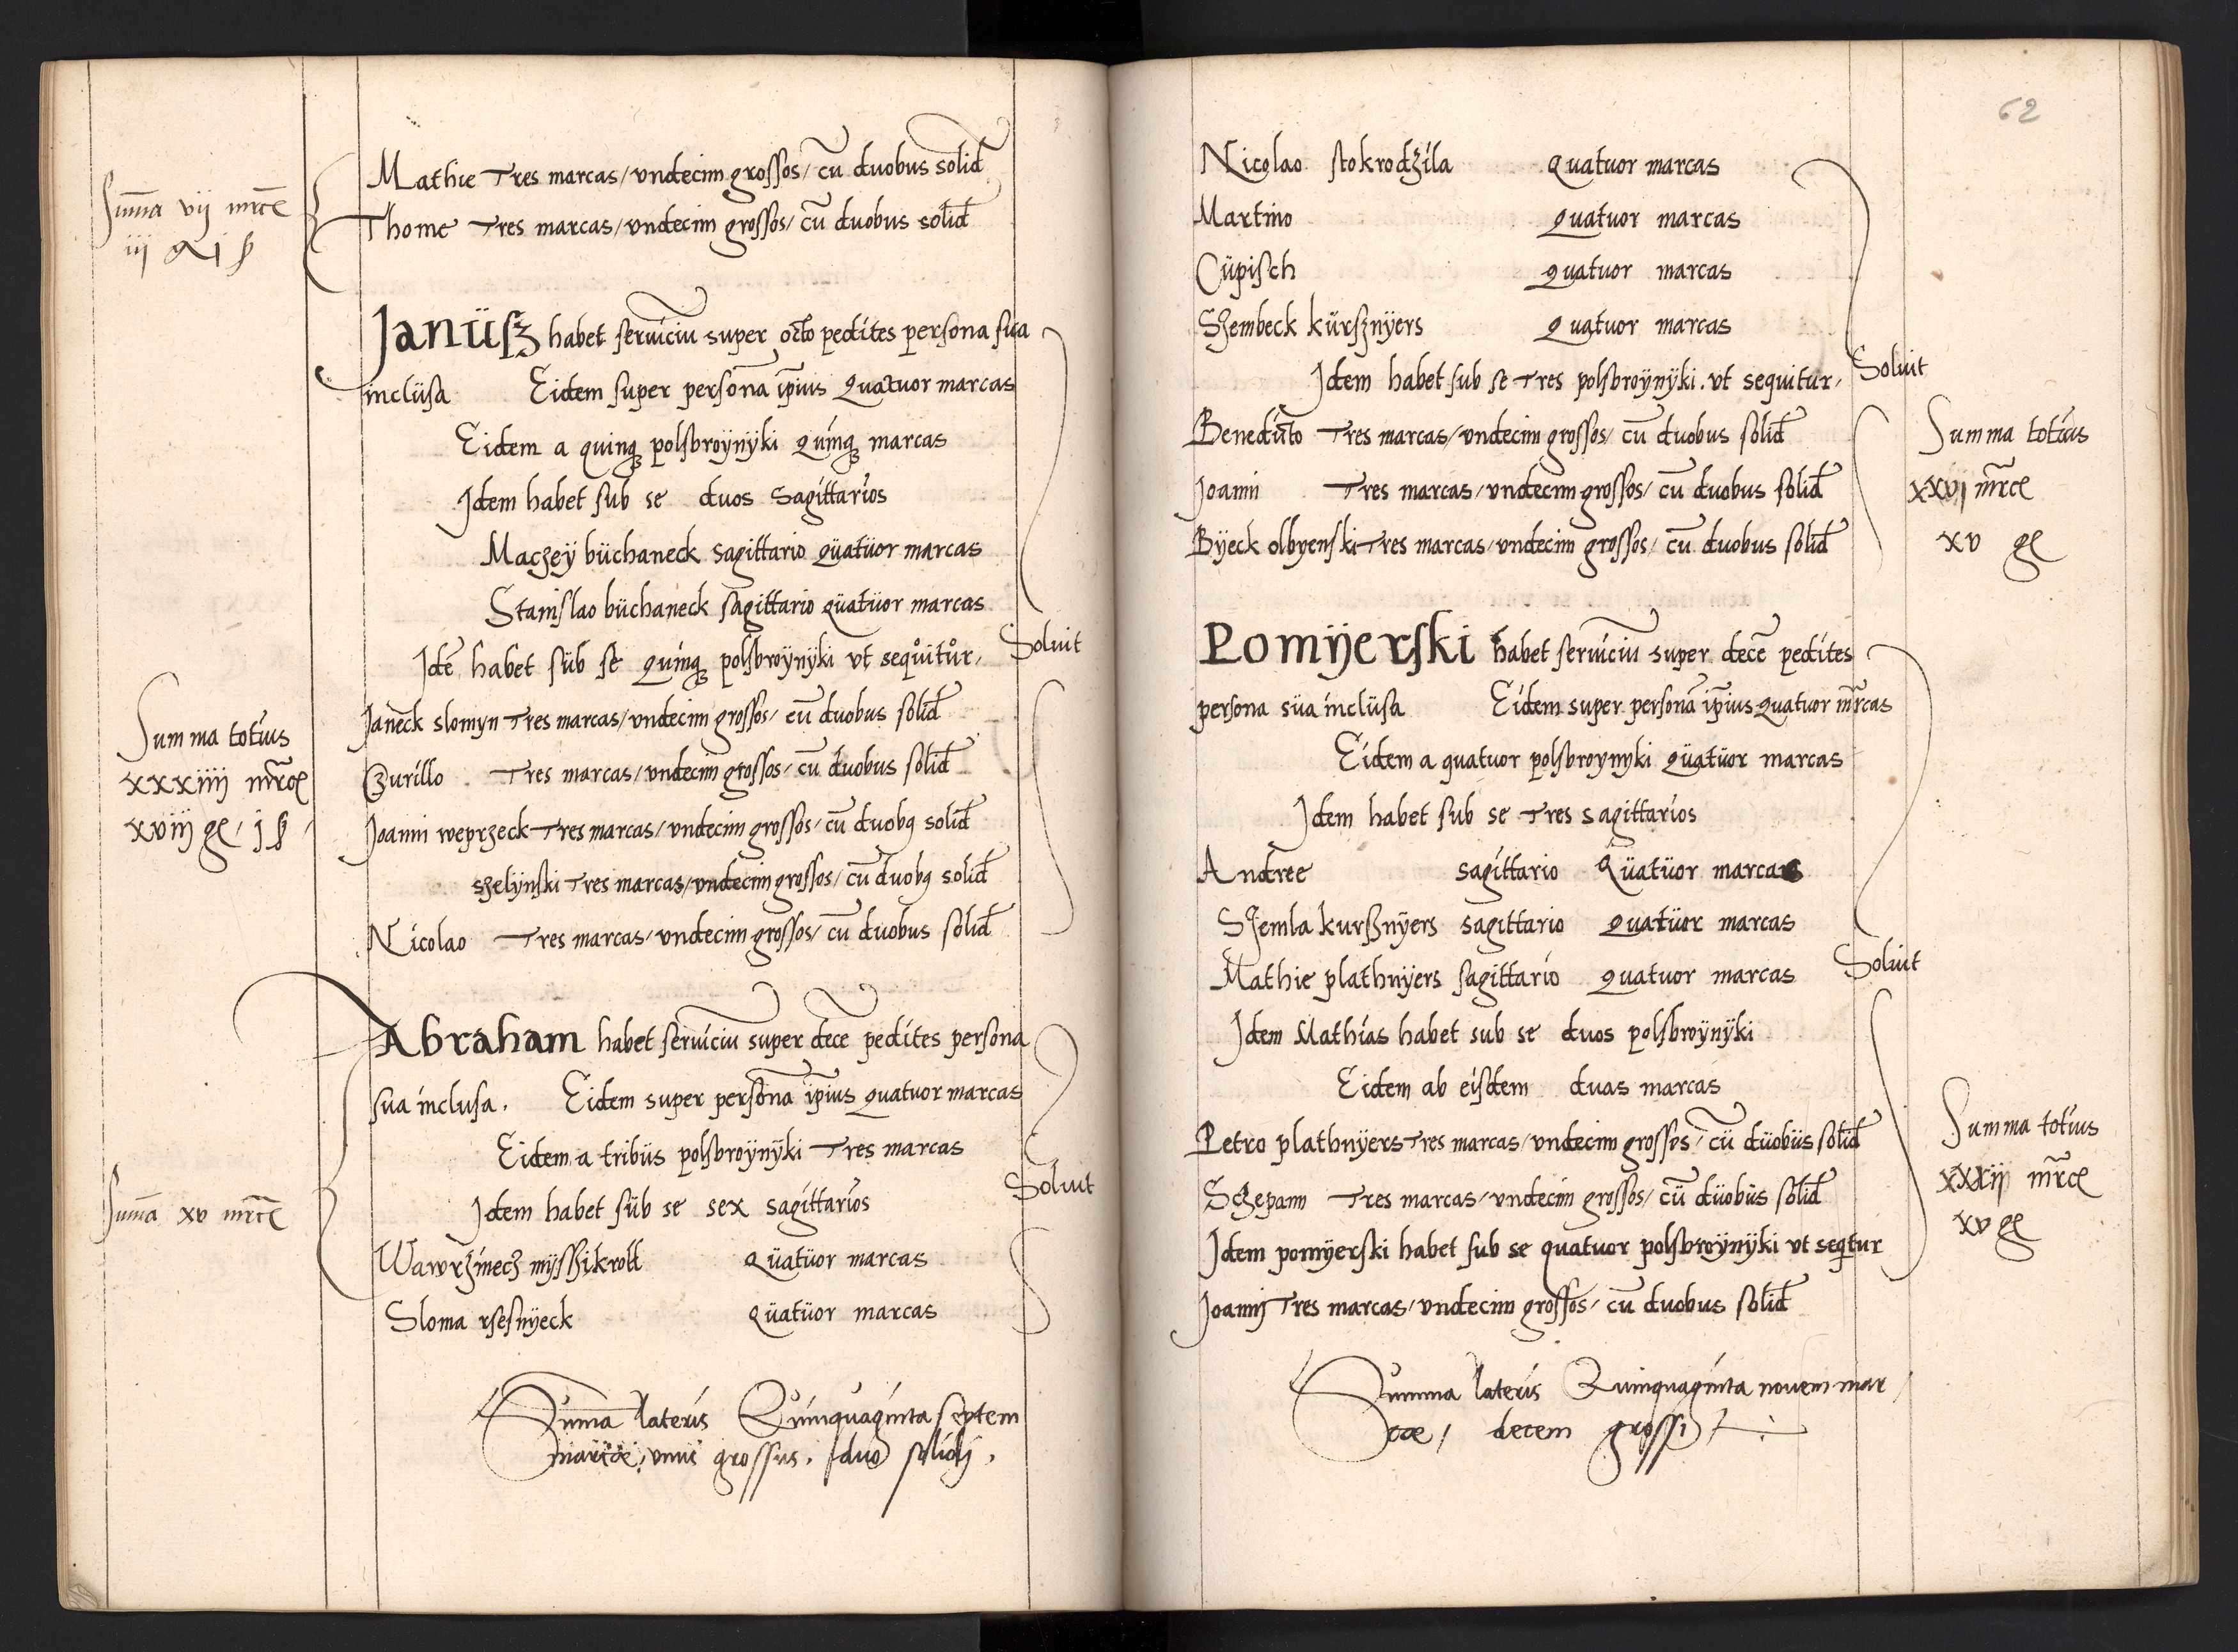 Mathie Tres marcas / vndecim grossos / cū duobus solid̄
Thome Tres marcas / vndecim grossos / cū duobus solid̄
Sum̄a vij mr̄ce
iij gͬ j ß
Janüsz habet seruiciū super octo pedites persona sua
inclüsa Eidem super persona ip̄ius Quatuor marcas
Eidem a quinqȝ polsbroÿnÿki Quinqȝ marcas
Idem habet sub se duos Sagittarios
Maczeÿ büchaneck sagittario Qüatüor marcas
Stanislao büchaneck sagittario qüatüor marcas
Idē habet süb se Quinqȝ polsbroÿnÿki vt sequitůr,
Soluit
Janeck slomyn Tres marcas / vndecim grossos / cū duobus solid̄
Czurillo Tres marcas / vndecim grossos / cū duobus solid̄
Joanni weprzeck Tres marcas / vndecim grossos / cū duobꝯ solid̄
szelÿnski Tres marcas / vndecim grossos / cū duobꝯ solid̄
Nicolao Tres marcas / vndecim grossos / cū duobus solid̄
Summa totius
xxxiiij mr̄ce
xviij ge / j ß /
Abraham habet seruiciū super decē pedites persona
sua inclusa. Eidem super persona ip̄ius quatuor marcas
Eidem a tribüs polsbroÿnÿki Tres marcas
Idem habet süb se sex sagittarios
Soluit
Sum̄a xv mr̄ce
Wawrzinecz mÿszikroll Qüatüor marcas
Sloma rsesnÿeck Qüatüor marcas
Sum̄a lateris Quinquaginta septem
marcae, vnus grossus. duo solidj.
62
Nicolao stokrodzila Quatuor marcas
Martino Quatuor marcas
Cüpisch Quatuor marcas
Szembeck kürsznÿers Quatuor marcas
Idem habet sub se Tres polsbroÿnÿki. vt sequitur,
Soluit
Benedicto Tres marcas / vndecim grossos / cū duobus solid̄
Joanni Tres marcas / vndecim grossos / cū duobus solid̄
Bÿeck olbyenski Tres marcas / vndecim grossos / cū duobus solid̄
Summa totius
xxvj mr̄ce
xv ge
Pomÿerski habet seruiciū super decē pedites
persona süa inclüsa Eidem super persona ip̄ius Quatuor mr̄cas
Eidem a quatuor polsbroynyki Qüatüor marcas
Idem habet sub se Tres sagittarios
Andree sagittario Qüatüor marcas
Szemla kursznÿers sagittario Quatüor marcas
Mathie plathnÿers sagittario Quatuor marcas
Soluit
Idem Mathias habet sub se duos polsbroÿnÿki
Eidem ab eisdem duas marcas
Petro plathnÿers Tres marcas / vndecim grossos / cū düobüs solid̄
Sczepann Tres marcas / vndecim grossos / cū düobüs solid̄
Idem pomÿerski habet sub se quatuor polsbroÿnÿki vt seqͥtur
Joannj Tres marcas / vndecim grossos / cū duobus solid̄
Summa totius
xxxij mr̄ce
xv ge
Summa lateris Quinquaginta nouem mar
cae / decem grossi